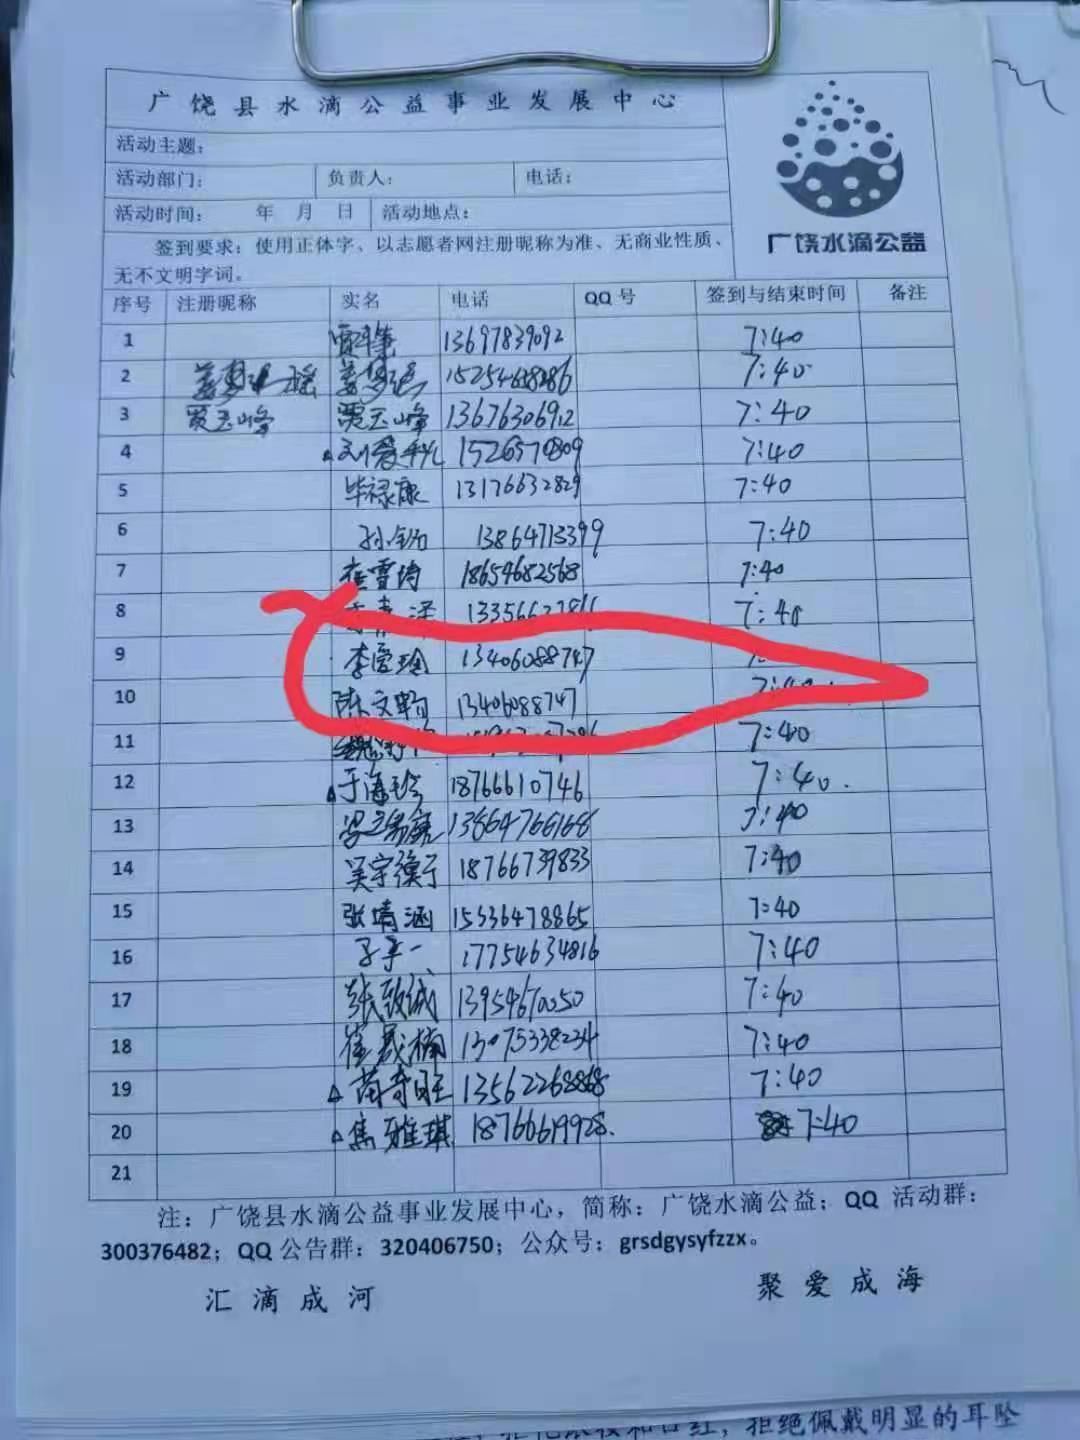 广饶县水滴公益事业发展中心
活动主题：
活动部门： 负责人： 电话：
活动时间： 年 月 日 活动地点：
广饶水滴公益
签到要求：使用正体字、以志愿者网注册昵称为准、无商业性质、
无不文明字词。
序号 注册昵称 实名 电话 QQ号 签到与结束时间 备注
1 13697839092 7:40
2 7:40
3 贾玉峰 贾玉峰 13676306912 7:40
4 15265710809 7:40
5 毕禄康 13176632829 7:40
6 13864713399 7:40
7 崔雪琦 18654682568 7:40
8 7:40
9 李爱玲 13406088747
10 陈文昀 13406088747 7:40
11 7:40
12 18766610746 7:40.
13 13864766168 7:40
14 18766739833 7:40
15 张婧涵 15336478865 7:40
16 17754634816 7:40
17 张致诚 13954670050 7:40
18 崔晟楠 13075338234 7:40
19 13562268868 7:40
20 焦雅琪 18766619928. 7:40
21
注：广饶县水滴公益事业发展中心，简称：广饶水滴公益；QQ 活动群：
300376482；QQ公告群：320406750；公众号：grsdgysyfzzx。
汇滴成河 聚爱成海
拒绝佩戴明显的耳坠